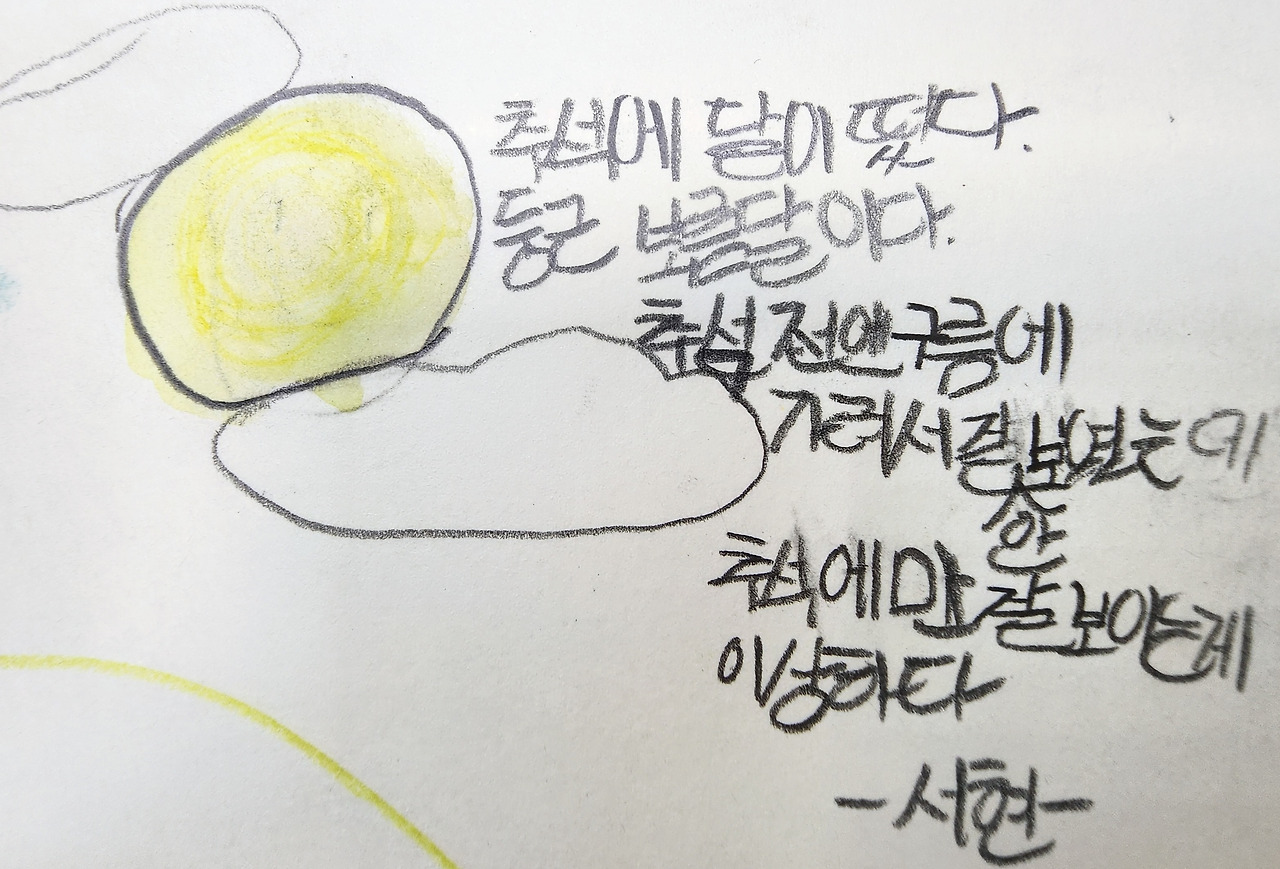 추석에 달이 떴다.
둥근 보름달이다.
추석 전엔 구름에
가려서 잘 보였는데
안
추석에만 잘 보이는게
이상하다
-서현-